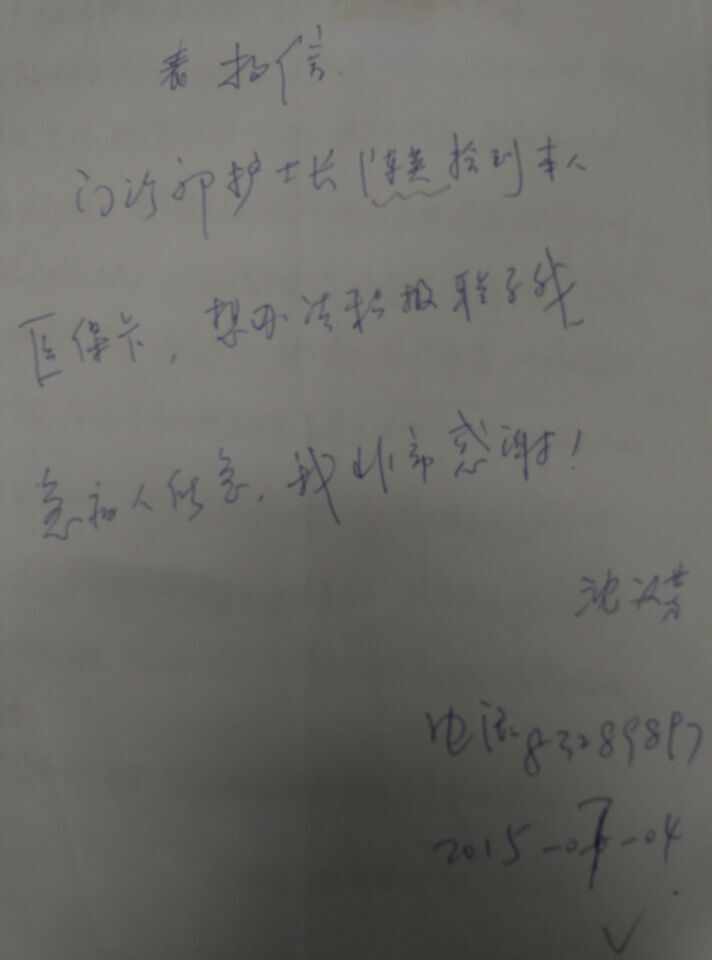 表扬信
门诊部护士长陈英捡到本人
医保卡，想办法积极联系我
急病人所急，我非常感谢！
沈
电话83289897
2015-07-04